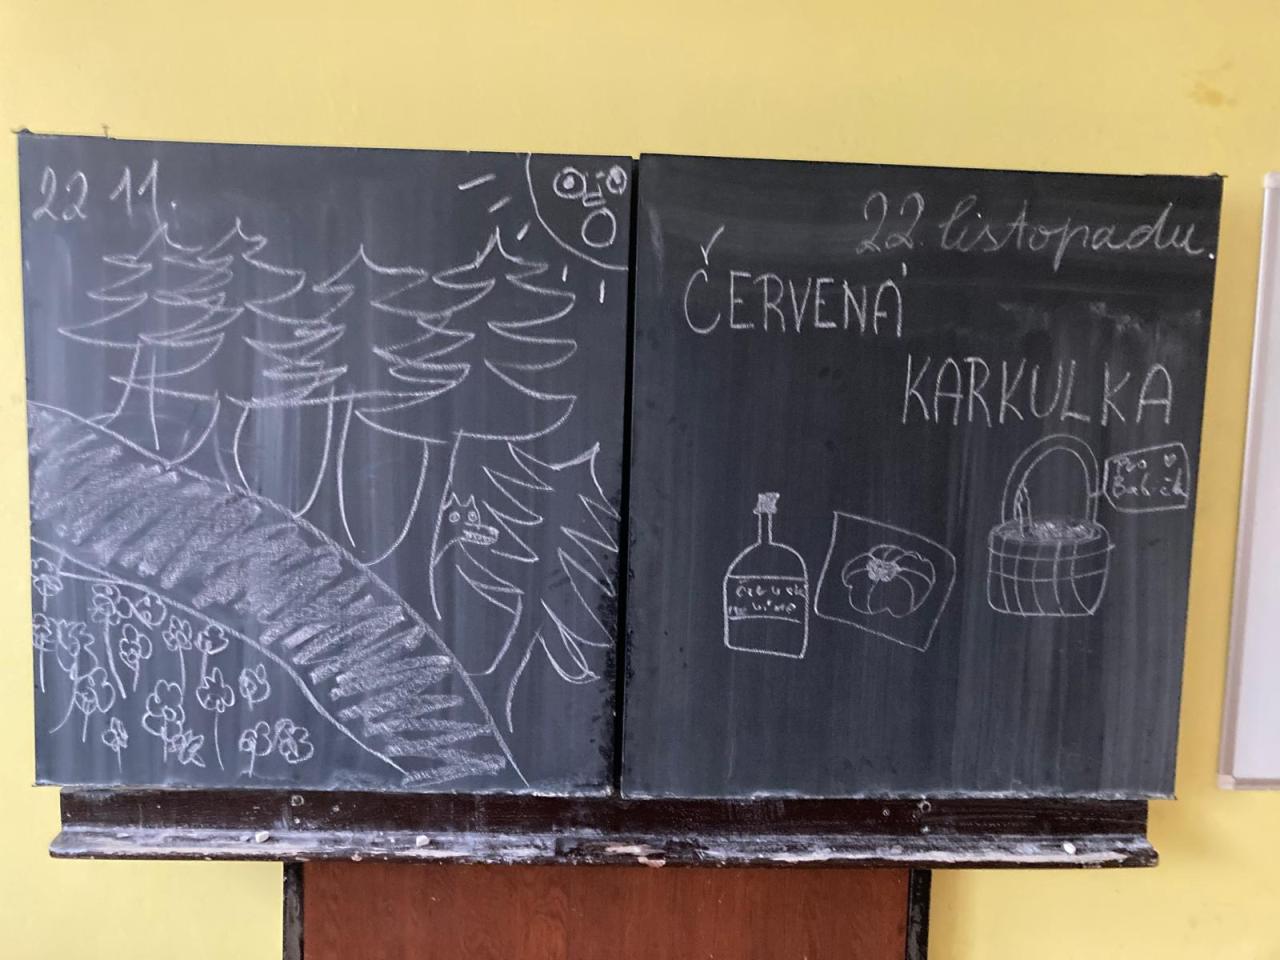 22 11.
22. listopadu.
ČERVENÁ
KARKULKA
Pro
víno